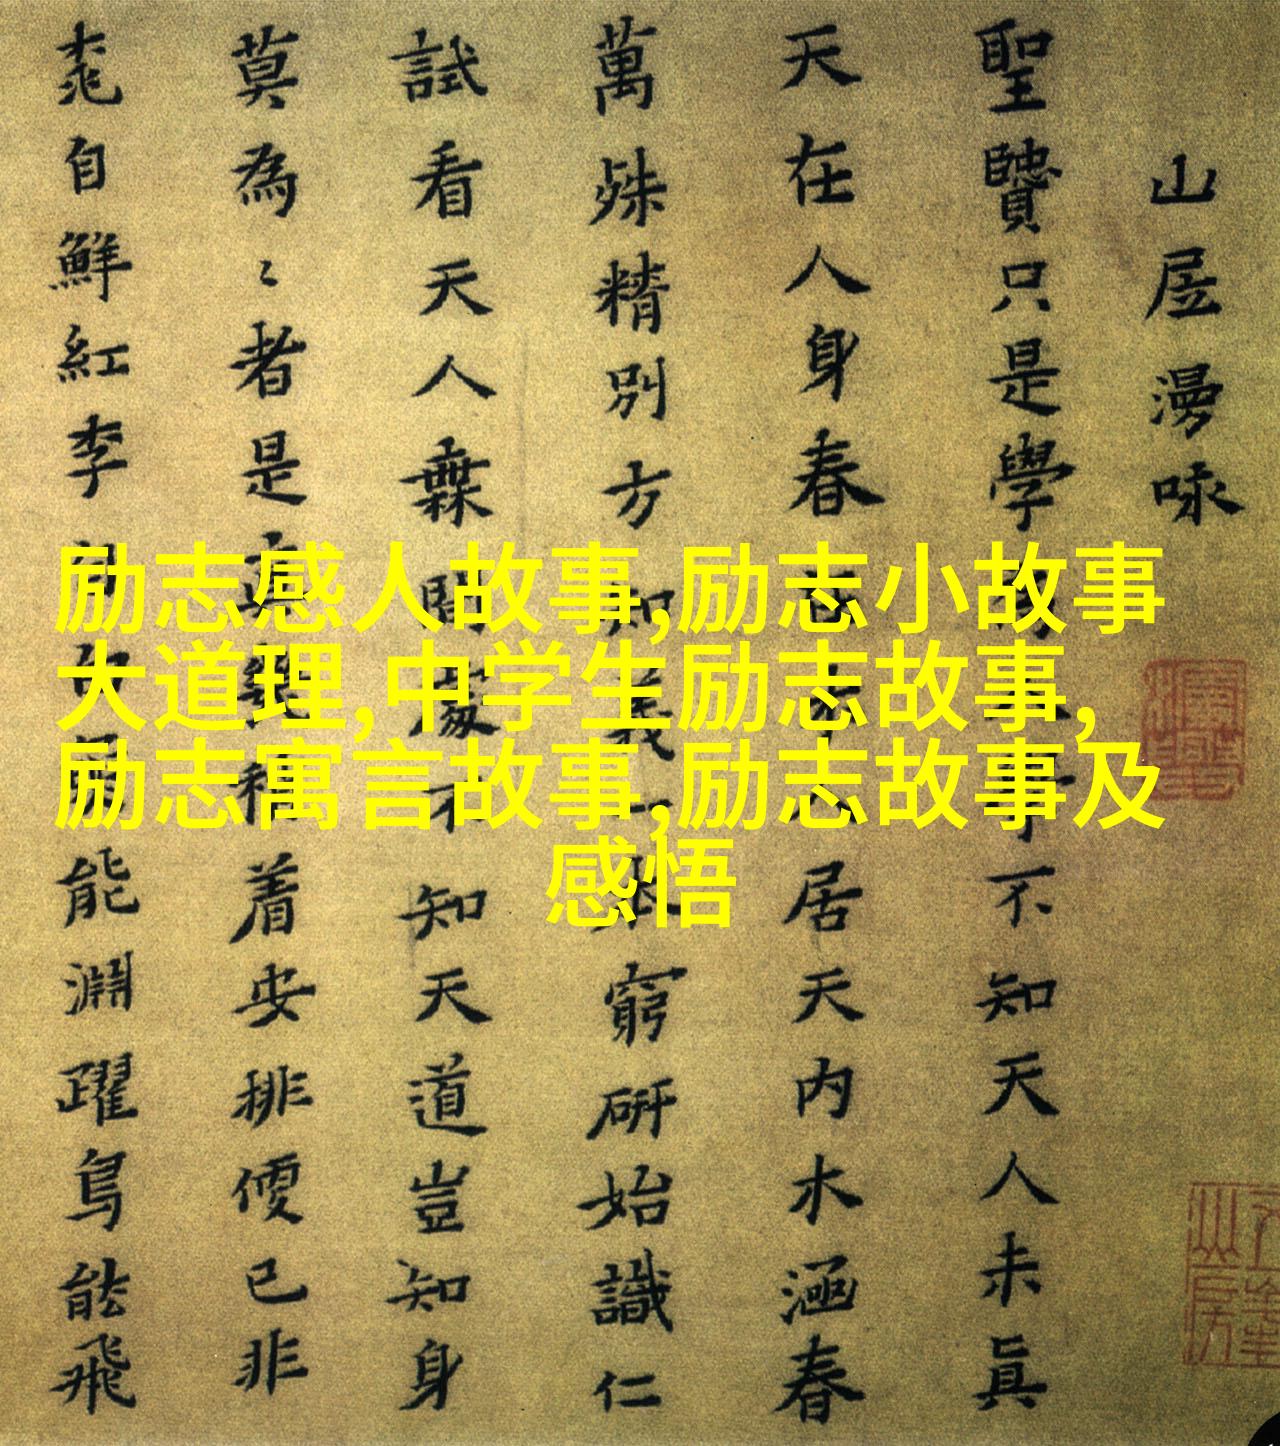 励志感人故事,励志小故事
大道理,中学生励志故事,
励志寓言故事,励志故事及
感悟
山居漫咏
聖賢只是學不知天人未真
天在人身春居天內木涵春
萬殊精別方知義窮研始識仁
試看天人無間處不知天道豈知身
莫為〻者是真着安排便已非
桃自鮮紅李能淵躍鳥能飛